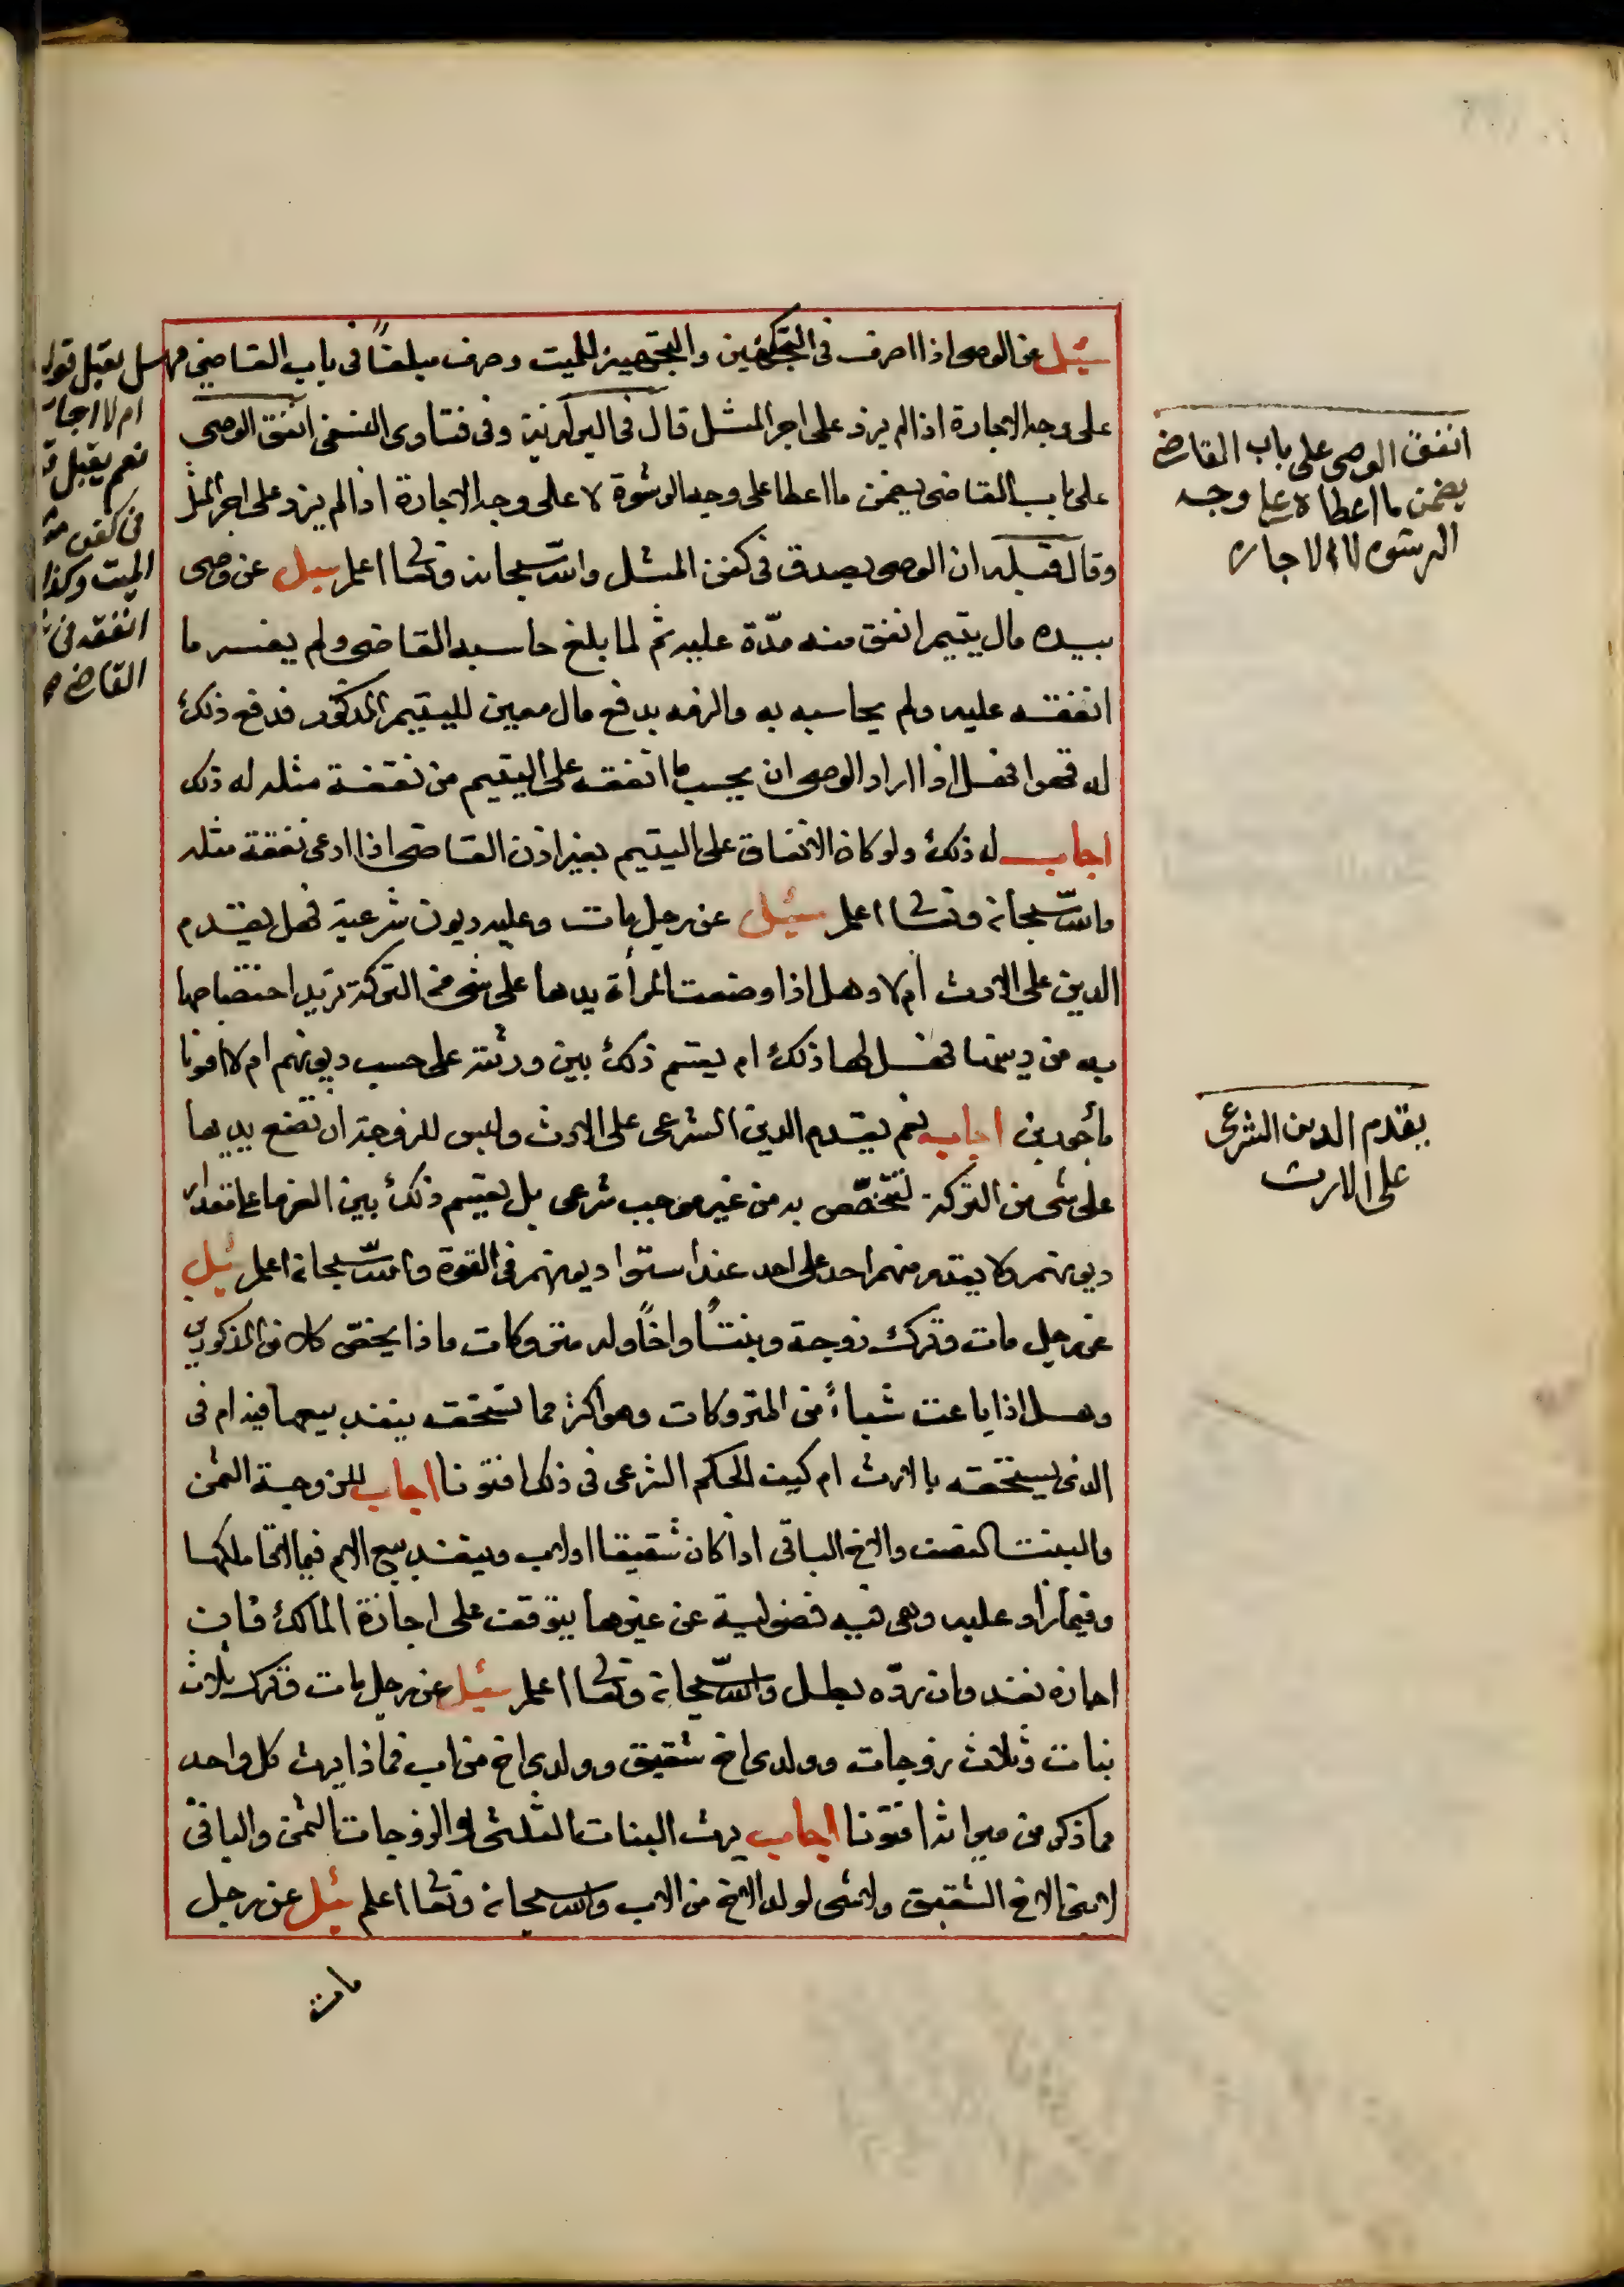 سئل عن الوصى اذا اصرف فى التكفين والتجهيز للميت وصرف مبلغاً فى باب القاضى فهل يقبل قوله
ام لا اجاب
نعم يقبل
فى كفن
الميت وكذا
انفقه فى
القاضى
على وجه الاجارة اذا لم يزد على اجر المثل قال فى البزازية وفى فتاوى النسفى انفق الوصى
على باب القاضى يضمن ما اعطا على وجه الرشوة لا على وجه الاجارة اذا لم يزد على اجر المثل
وقال قبله ان الوصى يصدق فى كفن المثل والله سبحانه وتعالى اعلم سيل عن وصى
بيده مال يتيم انفق منه مدّة عليه ثم لما بلغ حاسبه القاضى ولم يفسر ما
انفقه عليه ولم يحاسبه به والزمه بدفع مال معين لليتيم المذكور فدفع ذلك
له فهل اذا اراد الوصى ان يحسب ما انفقه على اليتيم من نفقة مثله له ذلك
اجاب له ذلك ولو كان الانفاق على اليتيم بغير اذن القاضى اذا ادعى نفقة مثله
والله سبحانه وتعالى اعلم سئيل عن رجل مات وعليه ديون شرعية فهل يقدم
الدين على الارث أم لا وهل اذا وضعت المرأة يدها على شى من التركة تريد اختصاصها
به من دينها فهل لها ذلك ام يقسم ذلك بين ورثته على حسب ديونهم ام لا افتونا
مأجورين اجاب نعم يقدم الدين الشرعى على الارث وليس للزوجة ان تضع يديها
على شى من التركة لتختصّ به من غير موجب شرعى بل يقسم ذلك بين الغرما على مقدار
ديونهم ولا يقدم منهم احد على احد عند استوا ديونهم فى القوة والله سبحانه اعلم سئل
عن رجل مات وترك زوجة وبنتاً واخاً وله متروكات ماذا يخص كلا من المذكورين
وهل اذا باعت شيأً من المتروكات وهو اكثر مما تستحقه ينفذ بيعها فيه ام فى
الذى يستحقه بالارث ام كيف الحكم الشرعى فى ذلك افتونا اجاب للزوجة الثمن
والبنت النصف والاخ الباقى اذا كان شقيقا او لاب وينفذ بيع الام فيما لها ملكها
وفيما زاد عليه وهى فيه فضولية عن غيرها يتوقف على اجازة المالك فان
اجازه نفذ وان ردّه بطل والله سبحانه وتعالى اعلم سئيل عن رجل مات وترك ثلاث
بنات وثلاث زوجات وولدى اخ شقيق وولدى اخ من اب فماذا يرث كل واحد
مما ذكر من ميراثه افتونا اجاب يرث البنات الثلثى والزوجات الثمن والباقى
لابنى الاخ الشقيق ولا شى لولد الاخ من الاب والله سبحانه وتعالى اعلم سئيل عن رجل
مات
انفق الوصى على باب القاضى
يضمن ما اعطاه على وجه
الرشوه لا الاجاره
يقدم الدين الشرعى
على الارث